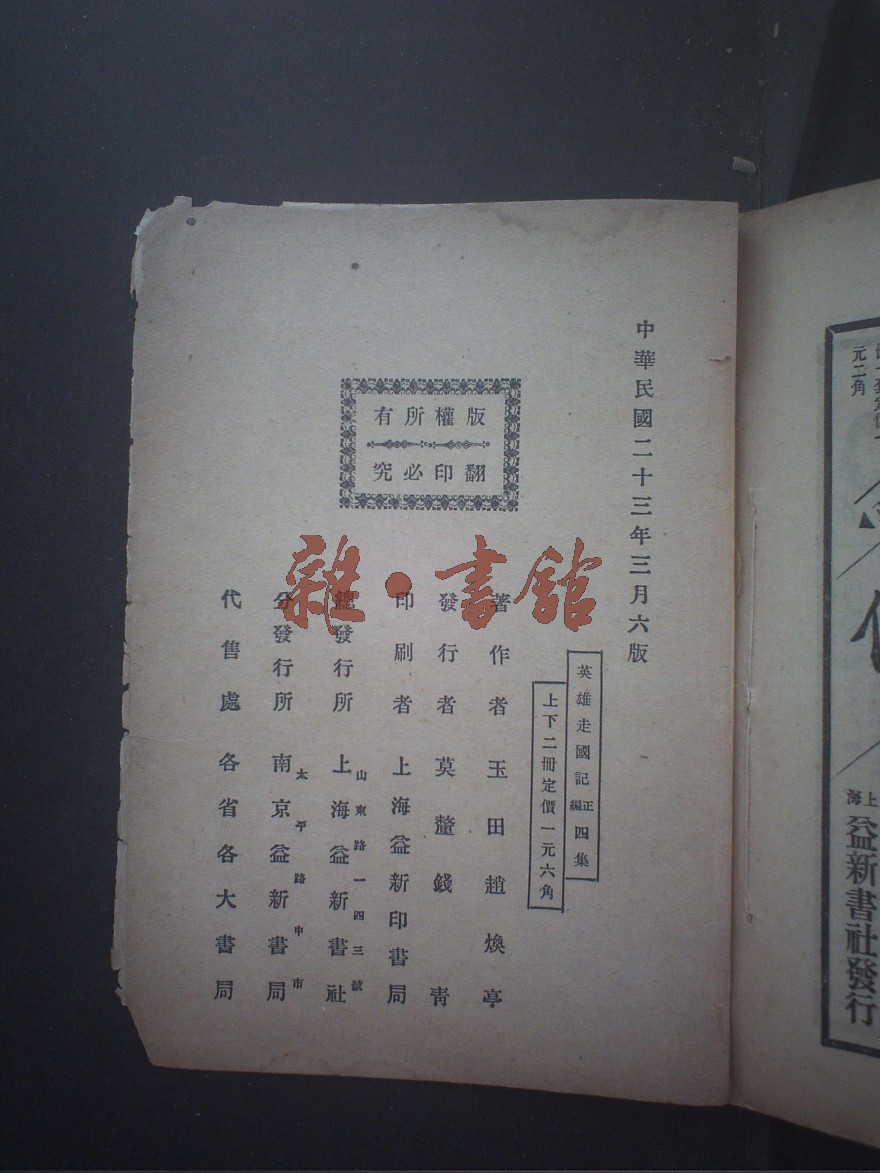 中華民國二十三年三月六版
版權所有
翻印必究
英雄走國記正編四集
上下二冊定價一元六角
著作者 玉田趙煥亭
發行者 莫釐錢青
印刷者 上海益新印書局
總發行所 上海益新書社
山東路一四三號
分發行所 南京益新書局
太平路中市
代售處 各省各大書局
雜·書館
元二角
上海
益新書社發行